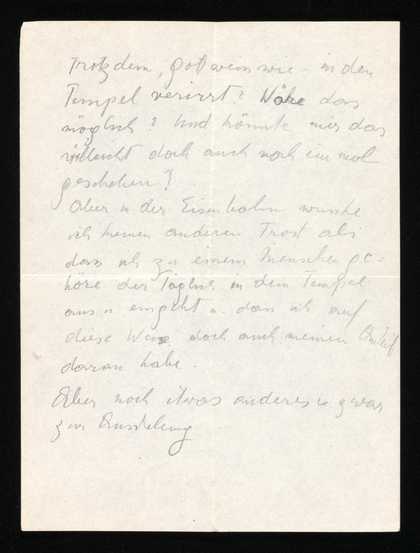 Trotzdem, gott weiss wie - in den
Tempel verirrt? Wäre das
möglich? Und könnte mir das
vielleicht doch auch noch ein mal
geschehen?
Aber in der Eisenbahn wusste
ich keinen anderen Trost als
dass ich zu einem Menschen ge-
höre der Täglich in dem Tempel
aus u eingeht u. dass ich auf
diese Weise doch auch meinen Anteil
daran habe.
Aber noch etwas anderes u zwar
zur